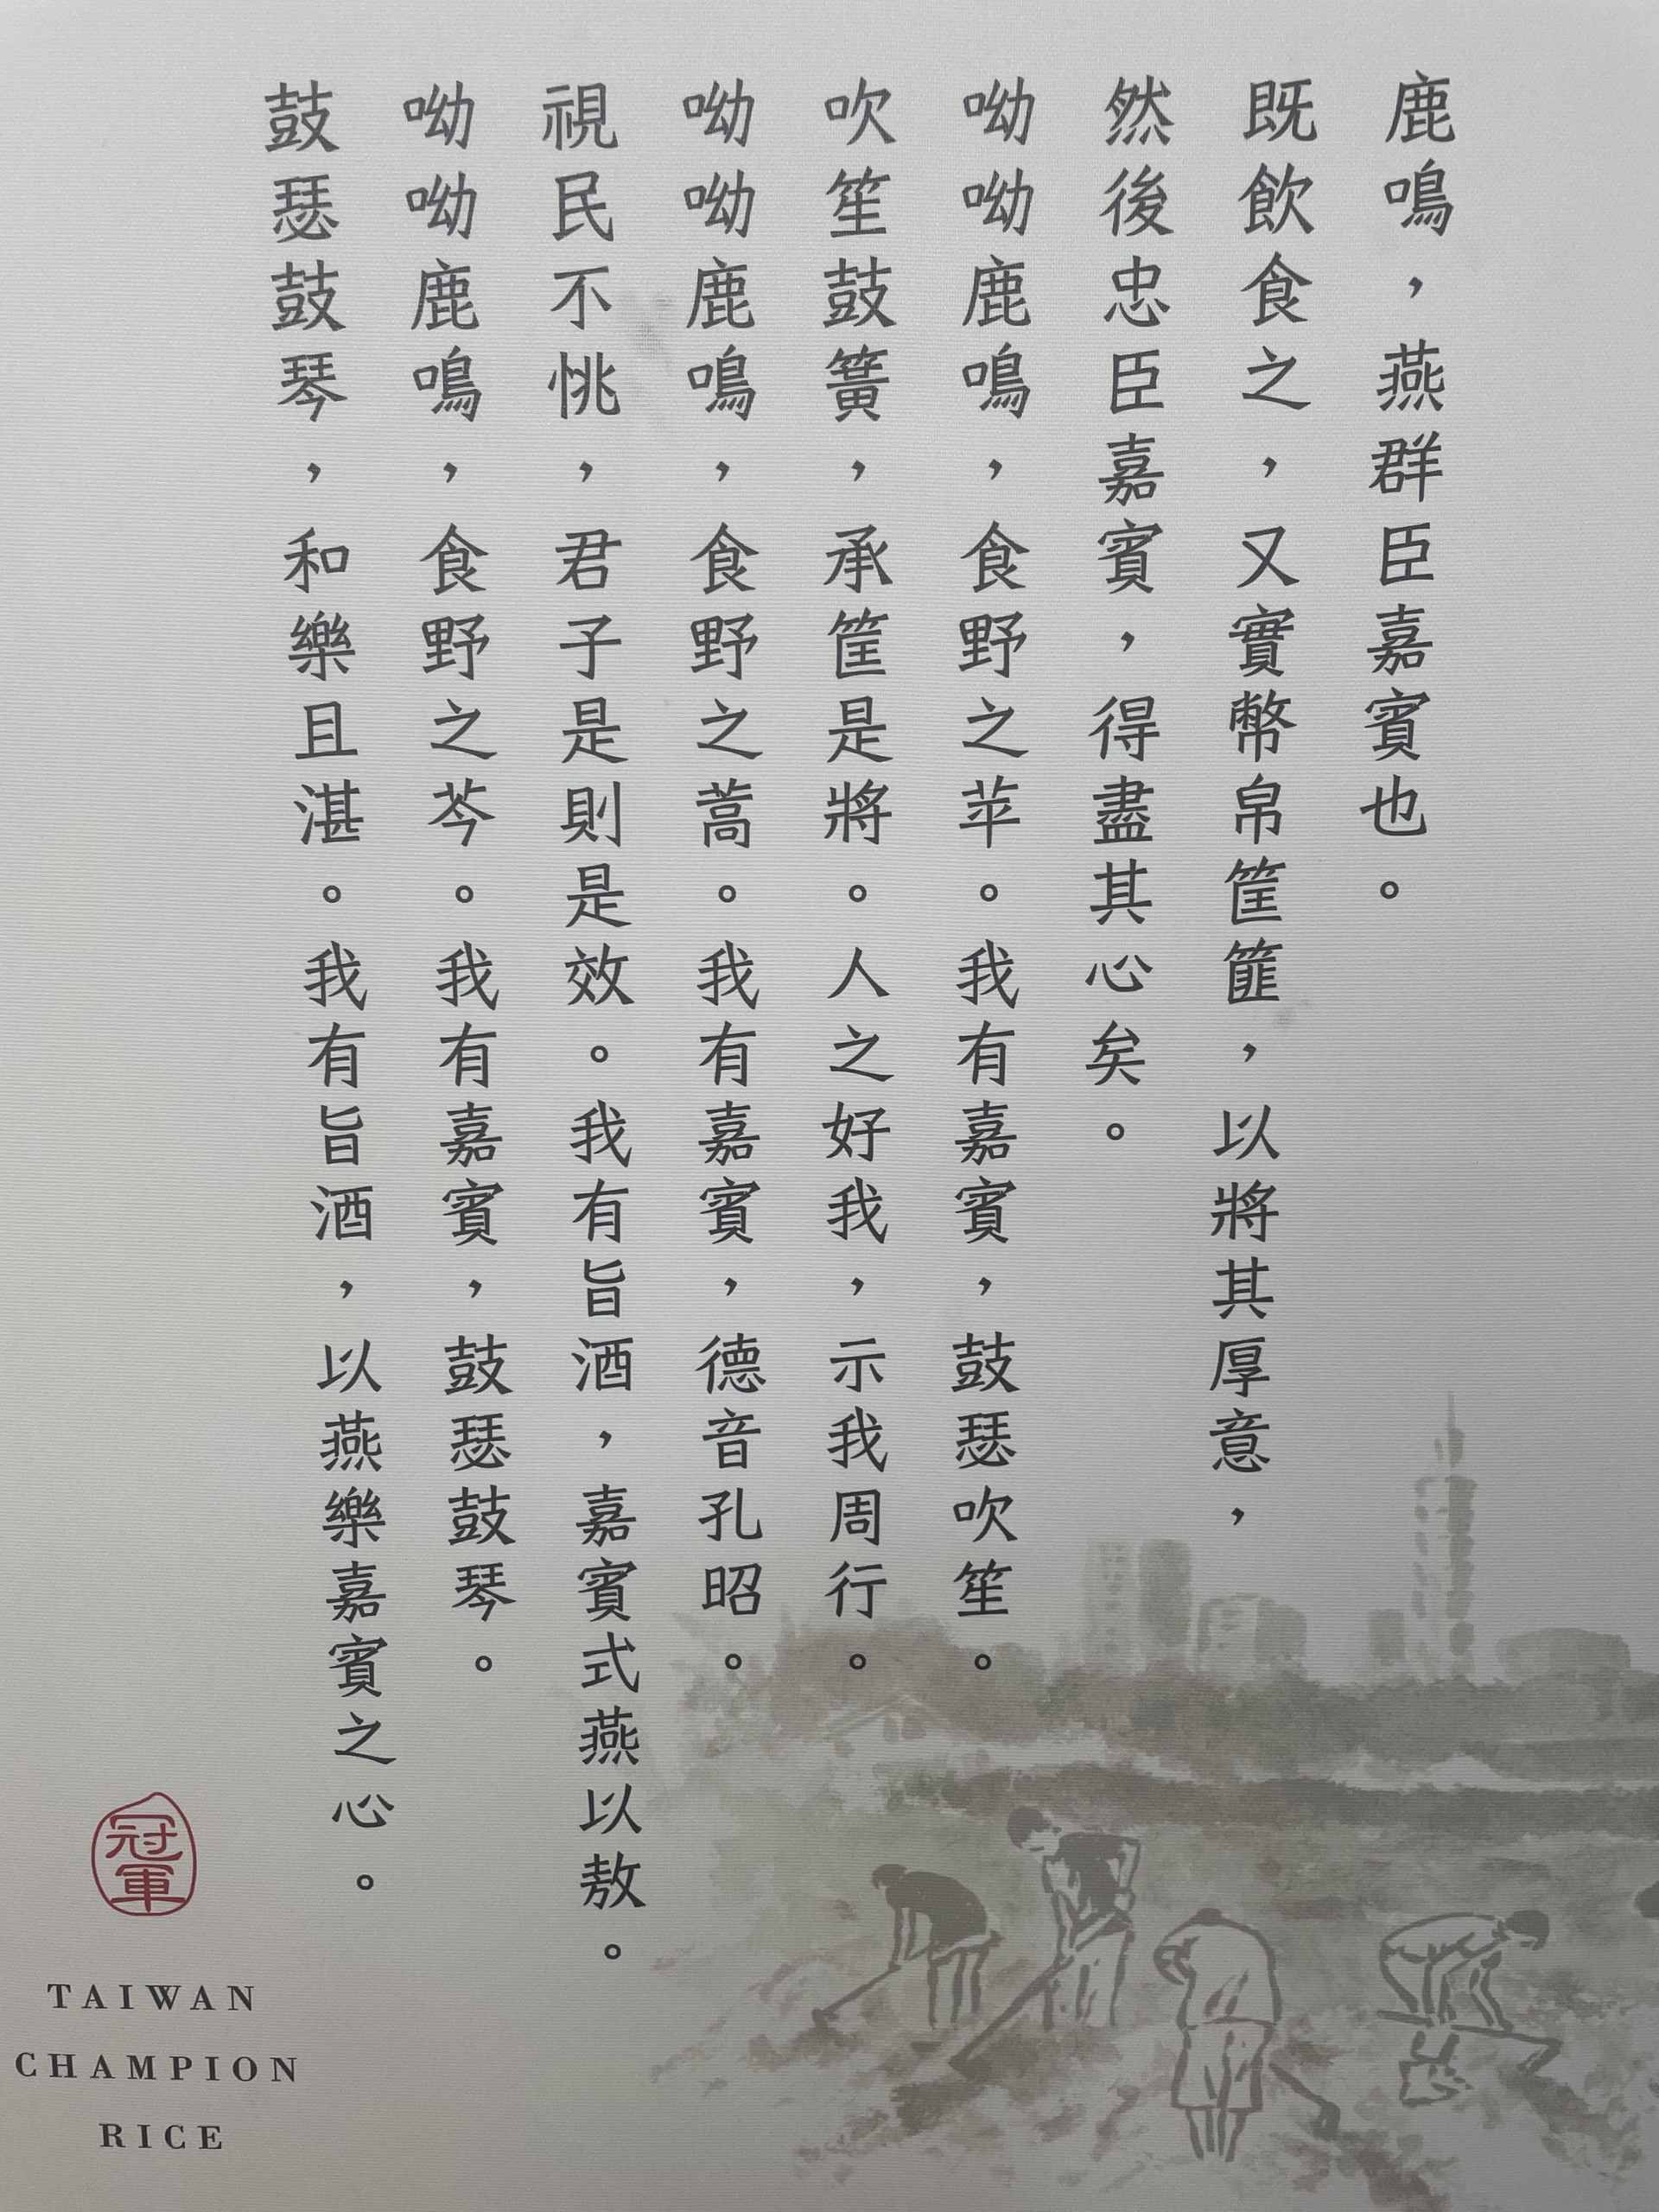 鹿鳴，燕群臣嘉賓也。
既飲食之，又實幣帛筐篚，以將其厚意，
然後忠臣嘉賓，得盡其心矣。
呦呦鹿鳴，食野之苹。我有嘉賓，鼓瑟吹笙。
吹笙鼓簧，承筐是將。人之好我，示我周行。
呦呦鹿鳴，食野之蒿。我有嘉賓，德音孔昭。
視民不恌，君子是則是效。我有旨酒，嘉賓式燕以敖。
呦呦鹿鳴，食野之芩。我有嘉賓，鼓瑟鼓琴。
鼓瑟鼓琴，和樂且湛。我有旨酒，以燕樂嘉賓之心。
冠軍
TAIWAN
CHAMPION
RICE